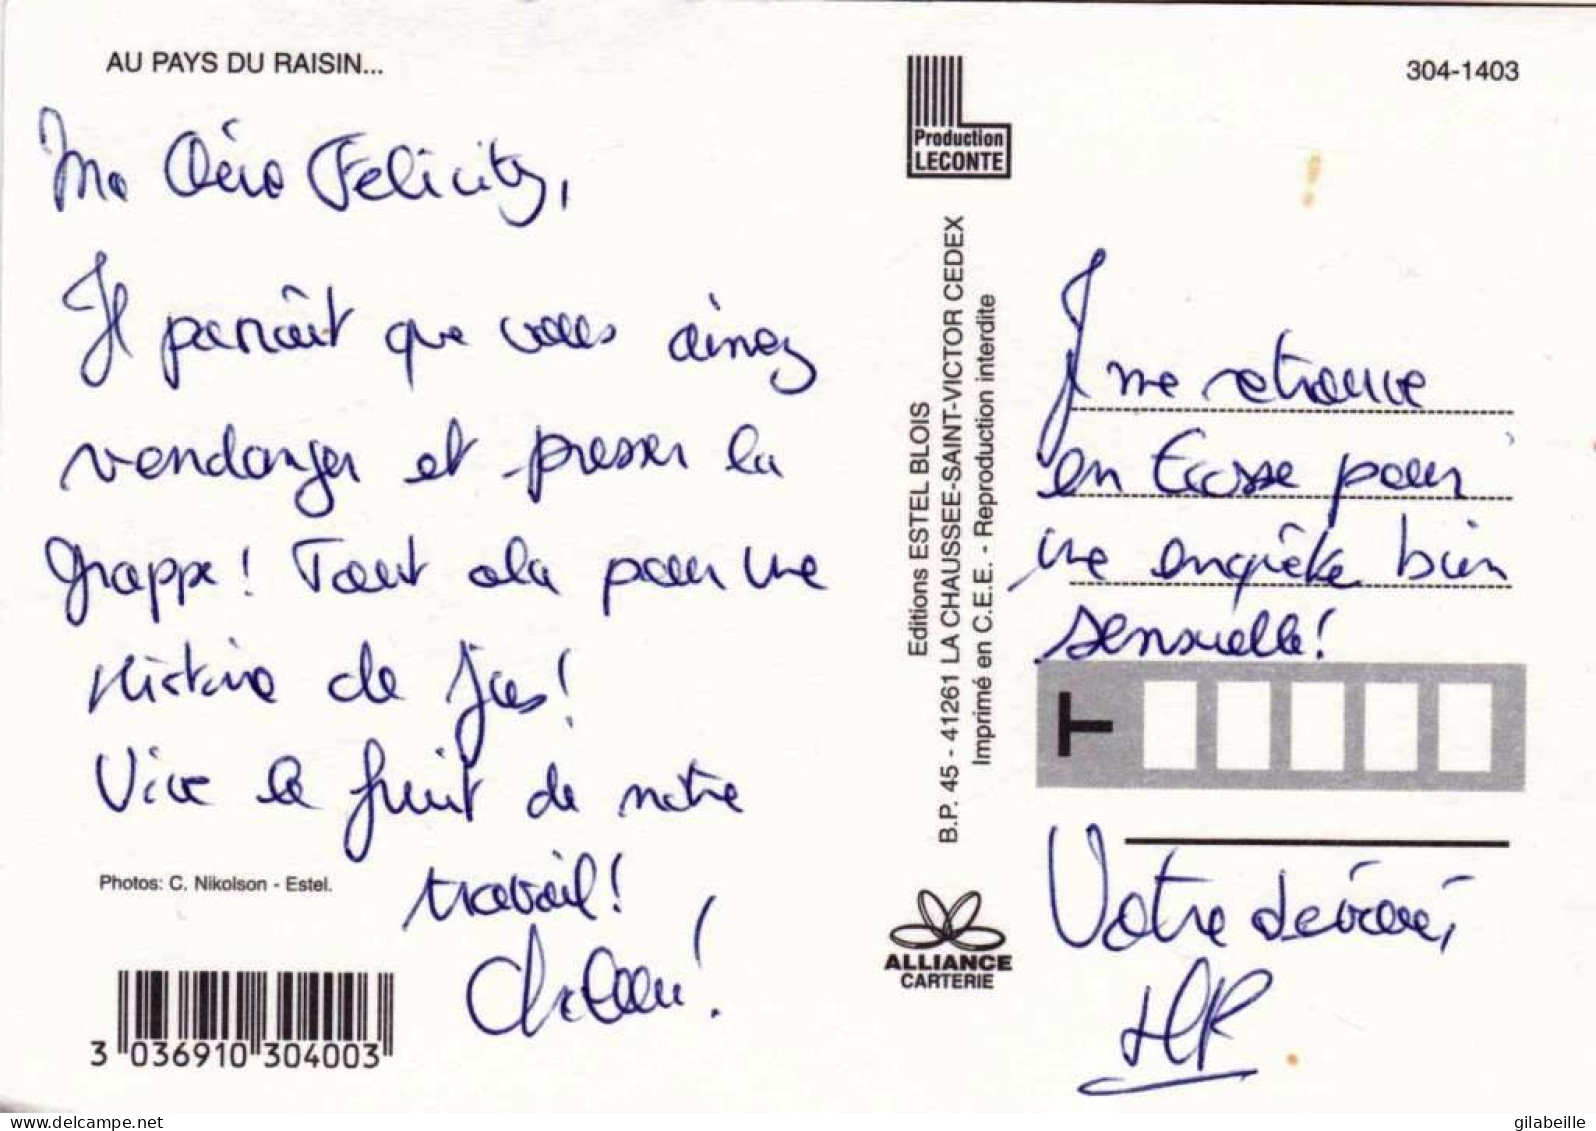 AU PAYS DU RAISIN...
Ma Chère Felicity,
Il paraît que vous aimez
vendanger et presser la
grappe! Tout cela pour une
histoire de jus!
Vive le fruit de notre
travail!
Photos: C. Nikolson - Estel.
3 036910 304003
Production
LECONTE
Editions ESTEL BLOIS
B.P. 45 - 41261 LA CHAUSSEE-SAINT-VICTOR CEDEX
Imprimé en C.E.E. - Reproduction interdite
ALLIANCE
CARTERIE
304-1403
Je me retrouve
en Ecosse pour
une enquête bien
sensuelle!
T
Votre dévoué,
HR
www.delcampe.net
gilabeille